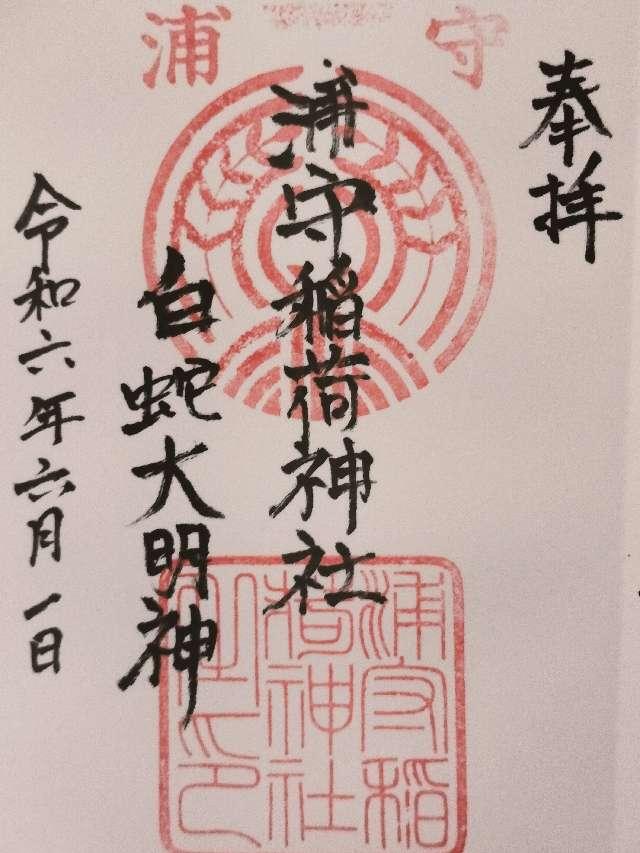 奉拝
浦守
浦守稲荷神社
白蛇大明神
令和六年六月一日
浦守稲
荷神社
之印